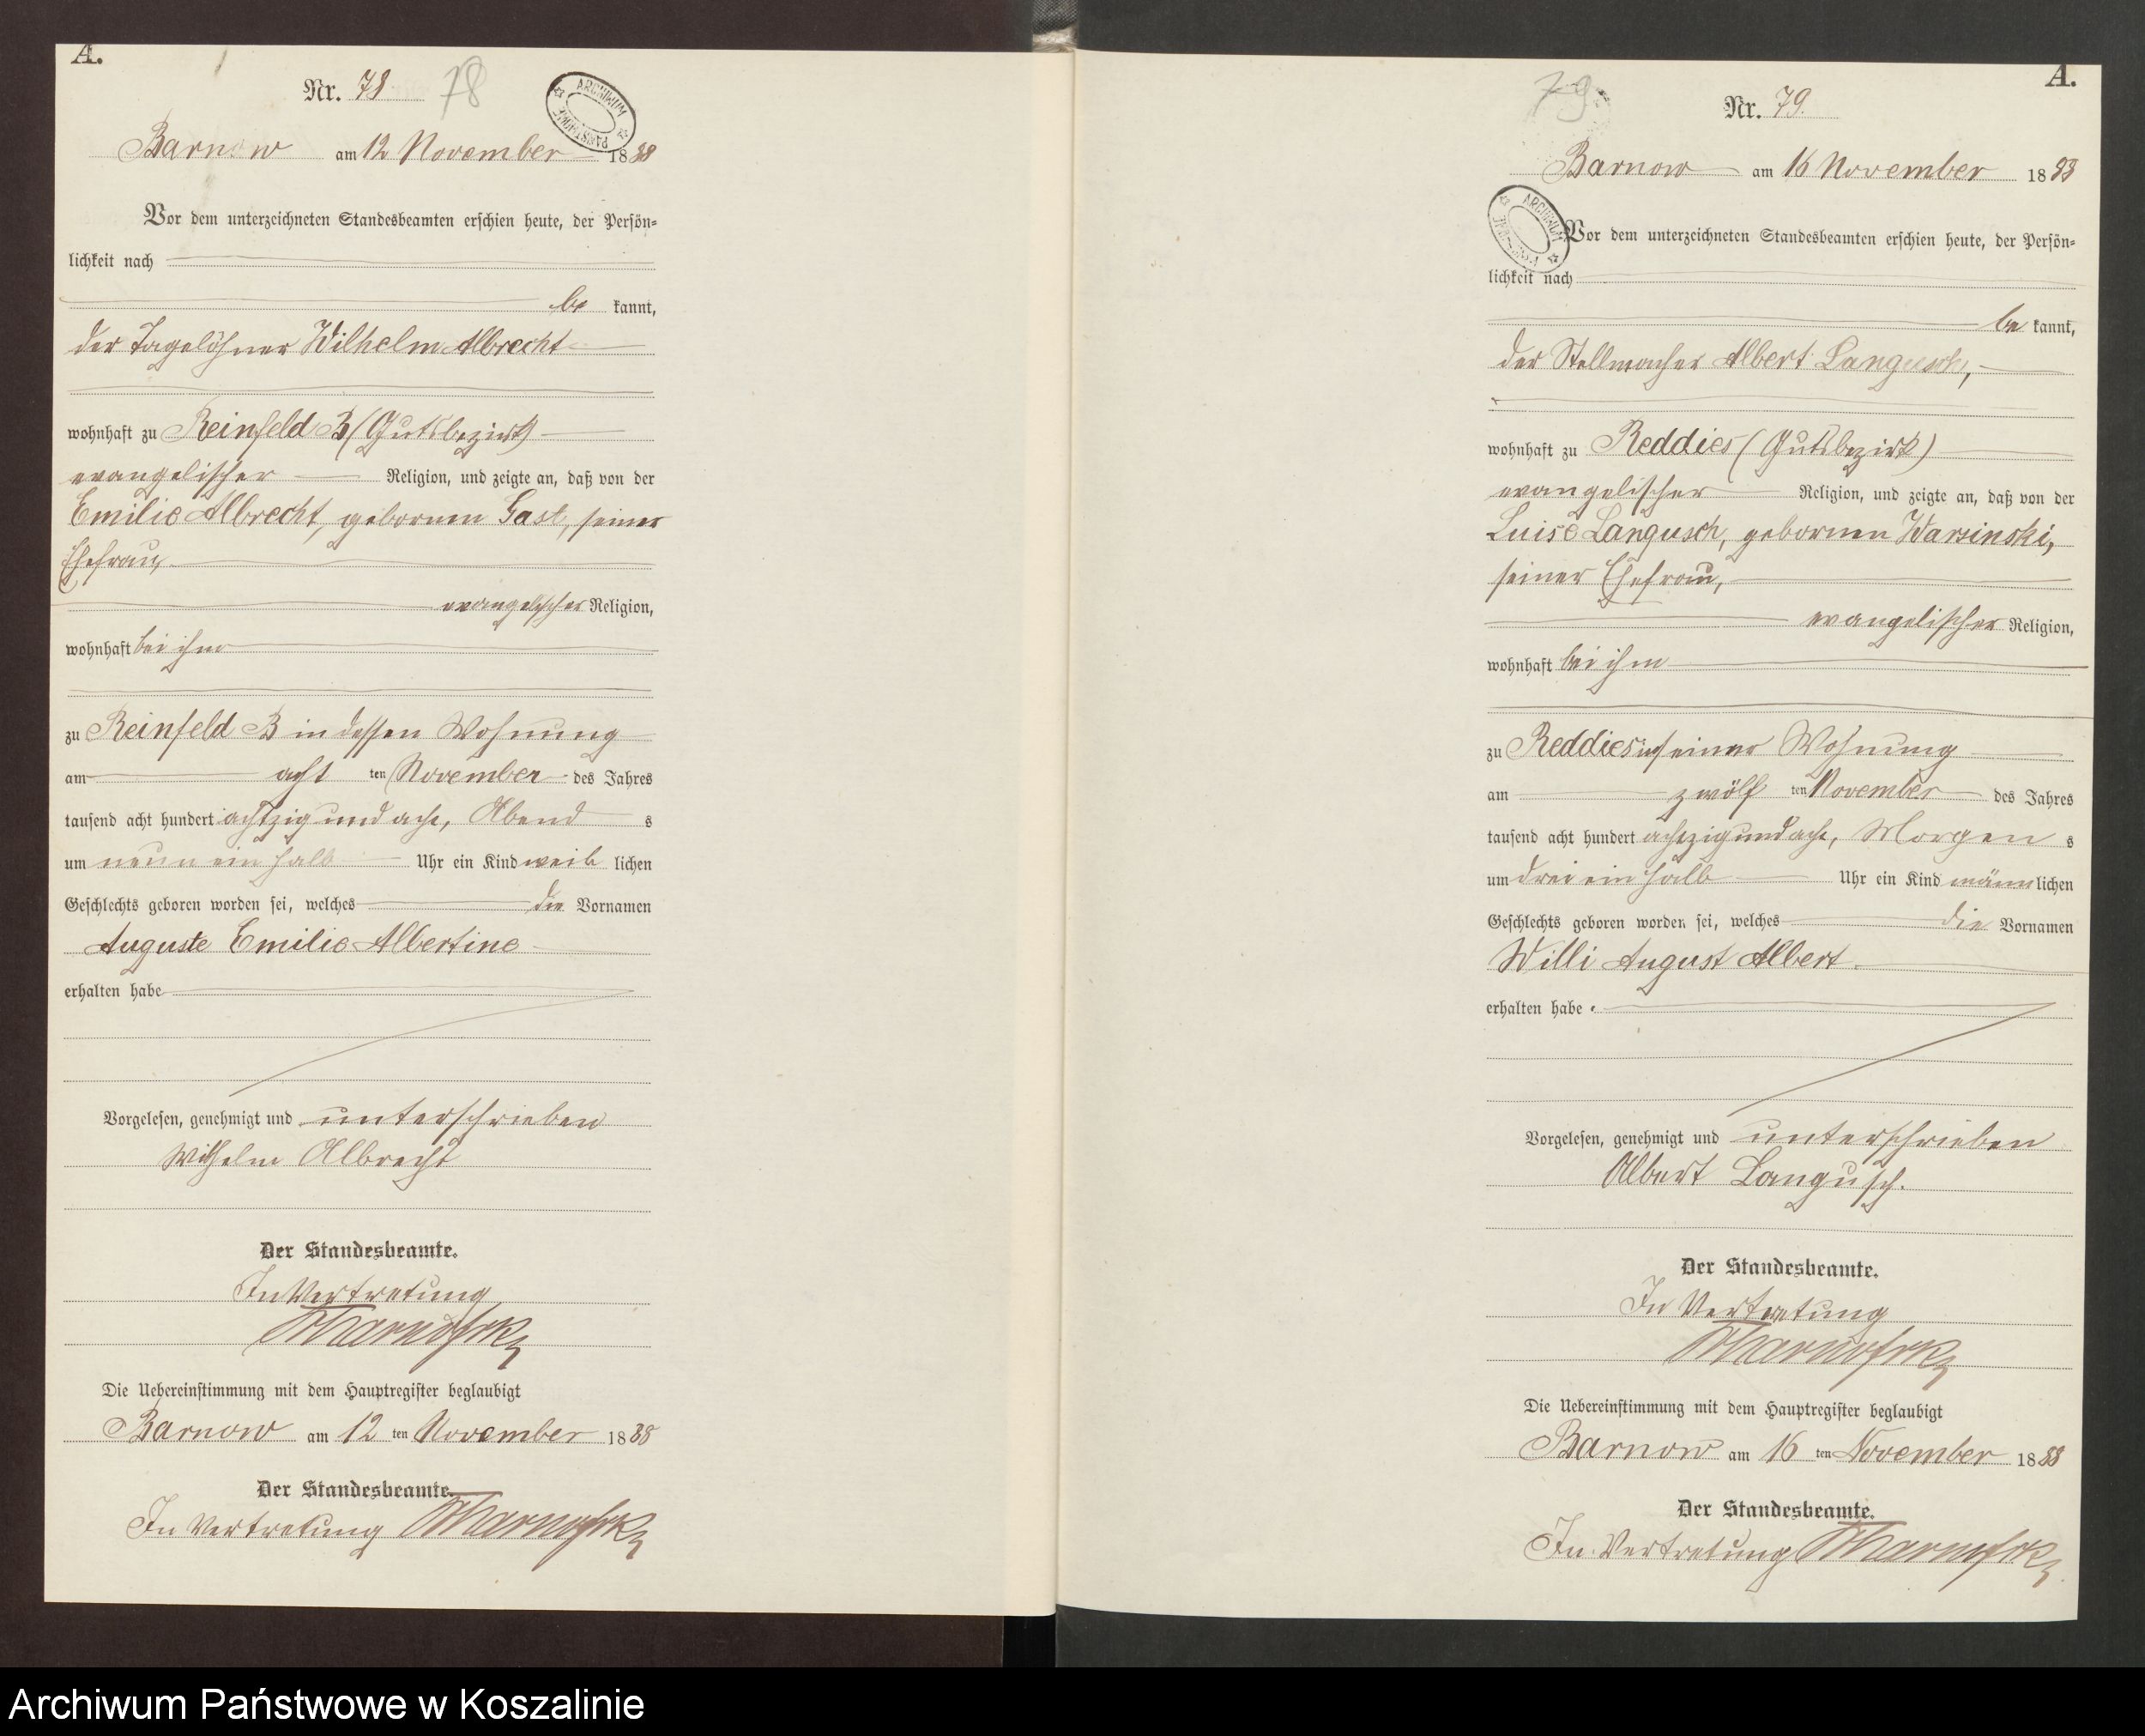 A.
Nr. 78 78
ARCHIWUM PAŃSTWOWE
Barnow am 12 November 1888
Vor dem unterzeichneten Standesbeamten erschien heute, der Persön-
lichkeit nach
be kannt,
der Tagelöhner Wilhelm Albrecht
wohnhaft zu Reinfeld B (Gutsbezirk)
evangelischer Religion, und zeigte an, daß von der
Emilie Albrecht, gebornen Gast, seiner
Ehefrau,
evangelischer Religion,
wohnhaft bei ihm
zu Reinfeld B in dessen Wohnung
am acht ten November des Jahres
tausend acht hundert achtzig und acht, Abend s
um neun ein halb Uhr ein Kind weib lichen
Geschlechts geboren worden sei, welches die Vornamen
Auguste Emilie Albertine
erhalten habe
Vorgelesen, genehmigt und unterschrieben
Wilhelm Albrecht
Der Standesbeamte.
In Vertretung
Die Uebereinstimmung mit dem Hauptregister beglaubigt
Barnow am 12 ten November 1888
Der Standesbeamte.
In Vertretung
A.
79. Nr. 79.
Barnow am 16 November 1888
ARCHIWUM
Vor dem unterzeichneten Standesbeamten erschien heute, der Persön-
lichkeit nach
be kannt,
der Stellmacher Albert Langusch,
wohnhaft zu Reddies (Gutsbezirk)
evangelischer Religion, und zeigte an, daß von der
Luise Langusch, gebornen Warsinski,
seiner Ehefrau,
evangelischer Religion,
wohnhaft bei ihm
zu Reddies in seiner Wohnung
am zwölf ten November des Jahres
tausend acht hundert achtzig und acht, Morgen s
um drei ein halb Uhr ein Kind männ lichen
Geschlechts geboren worden sei, welches die Vornamen
Willi August Albert
erhalten habe.
Vorgelesen, genehmigt und unterschrieben
Albert Langusch.
Der Standesbeamte.
In Vertretung
Die Uebereinstimmung mit dem Hauptregister beglaubigt
Barnow am 16 ten November 1888
Der Standesbeamte.
In Vertretung
Archiwum Państwowe w Koszalinie